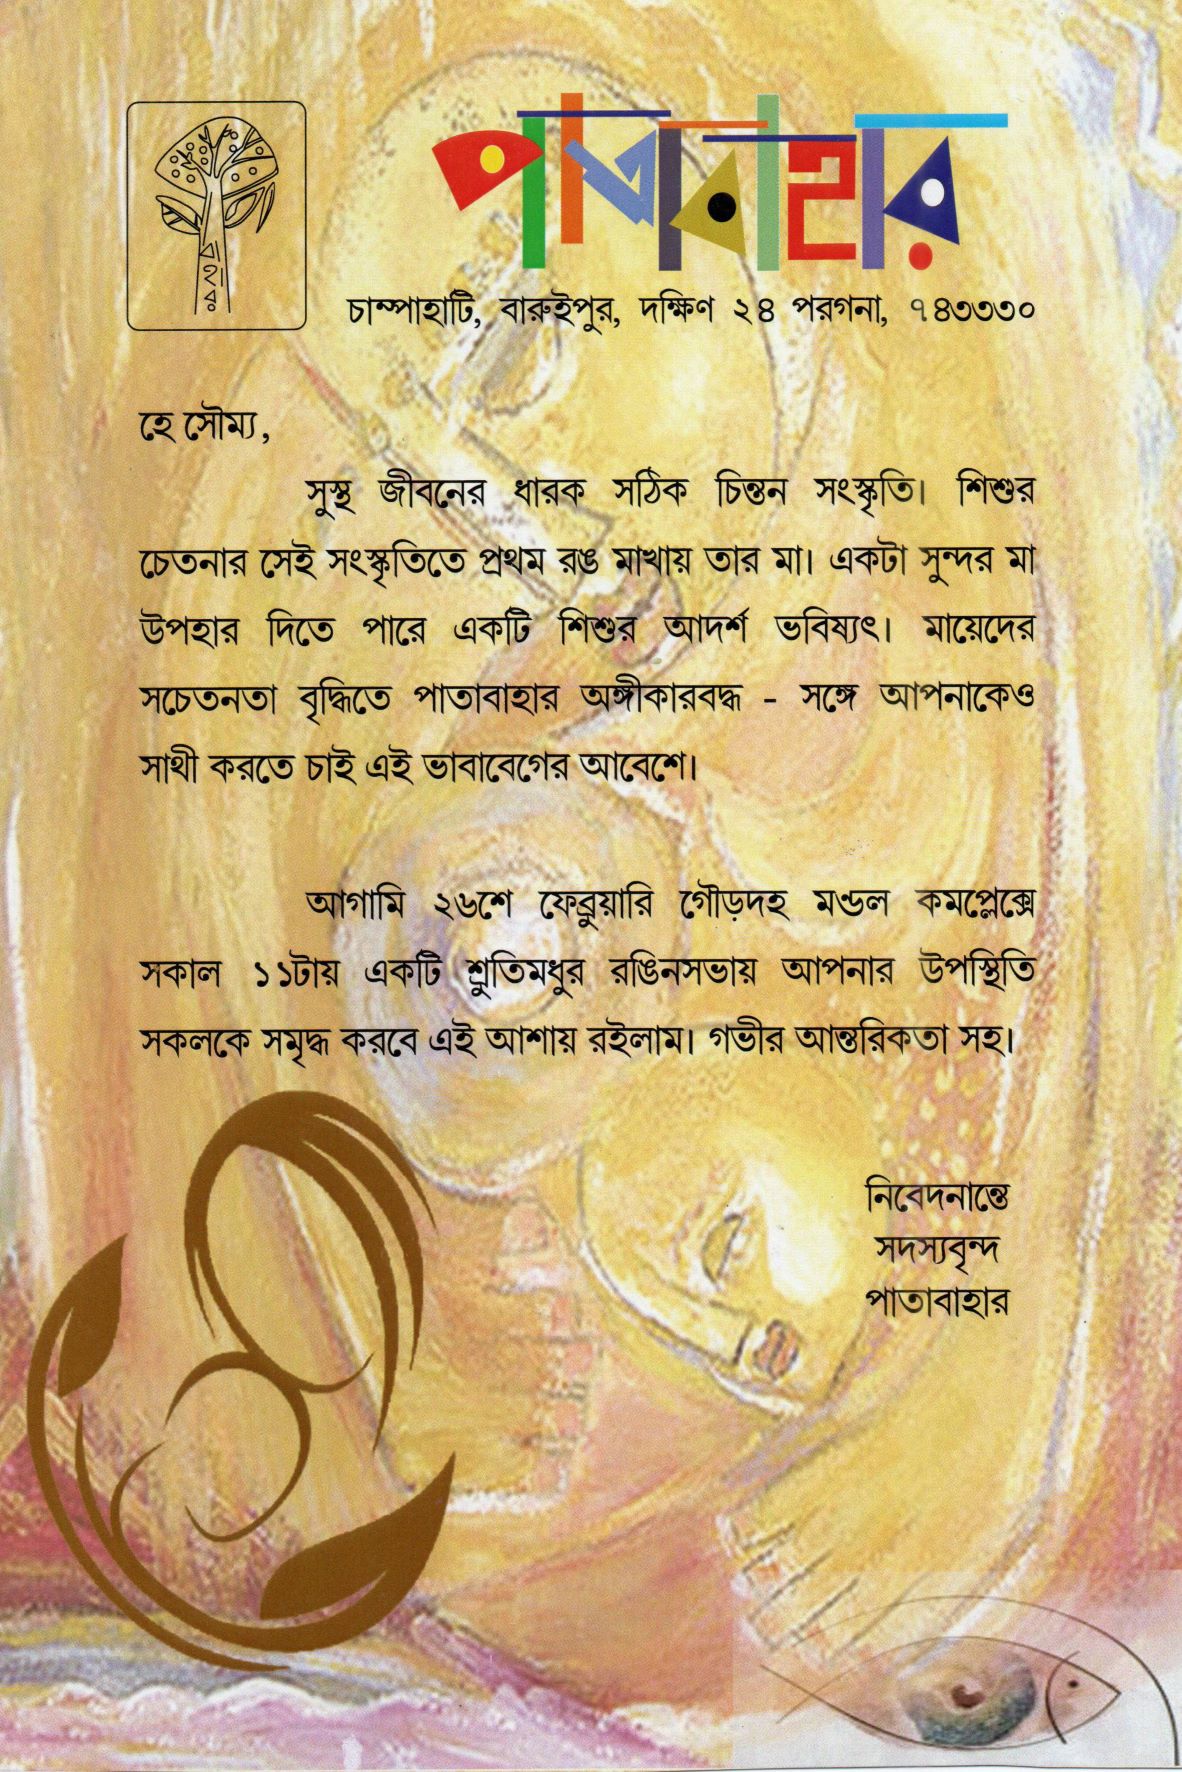 পাতাবাহার
বাহার
চাম্পাহাটি, বারুইপুর, দক্ষিণ ২৪ পরগনা, ৭৪৩৩৩০
হে সৌম্য,
সুস্থ জীবনের ধারক সঠিক চিন্তন সংস্কৃতি। শিশুর
চেতনার সেই সংস্কৃতিতে প্রথম রঙ মাখায় তার মা। একটা সুন্দর মা
উপহার দিতে পারে একটি শিশুর আদর্শ ভবিষ্যৎ। মায়েদের
সচেতনতা বৃদ্ধিতে পাতাবাহার অঙ্গীকারবদ্ধ - সঙ্গে আপনাকেও
সাথী করতে চাই এই ভাবাবেগের আবেশে।
আগামি ২৬শে ফেব্রুয়ারি গৌড়দহ মণ্ডল কমপ্লেক্সে
সকাল ১১টায় একটি শ্রুতিমধুর রঙিনসভায় আপনার উপস্থিতি
সকলকে সমৃদ্ধ করবে এই আশায় রইলাম। গভীর আন্তরিকতা সহ।
নিবেদনান্তে
সদস্যবৃন্দ
পাতাবাহার